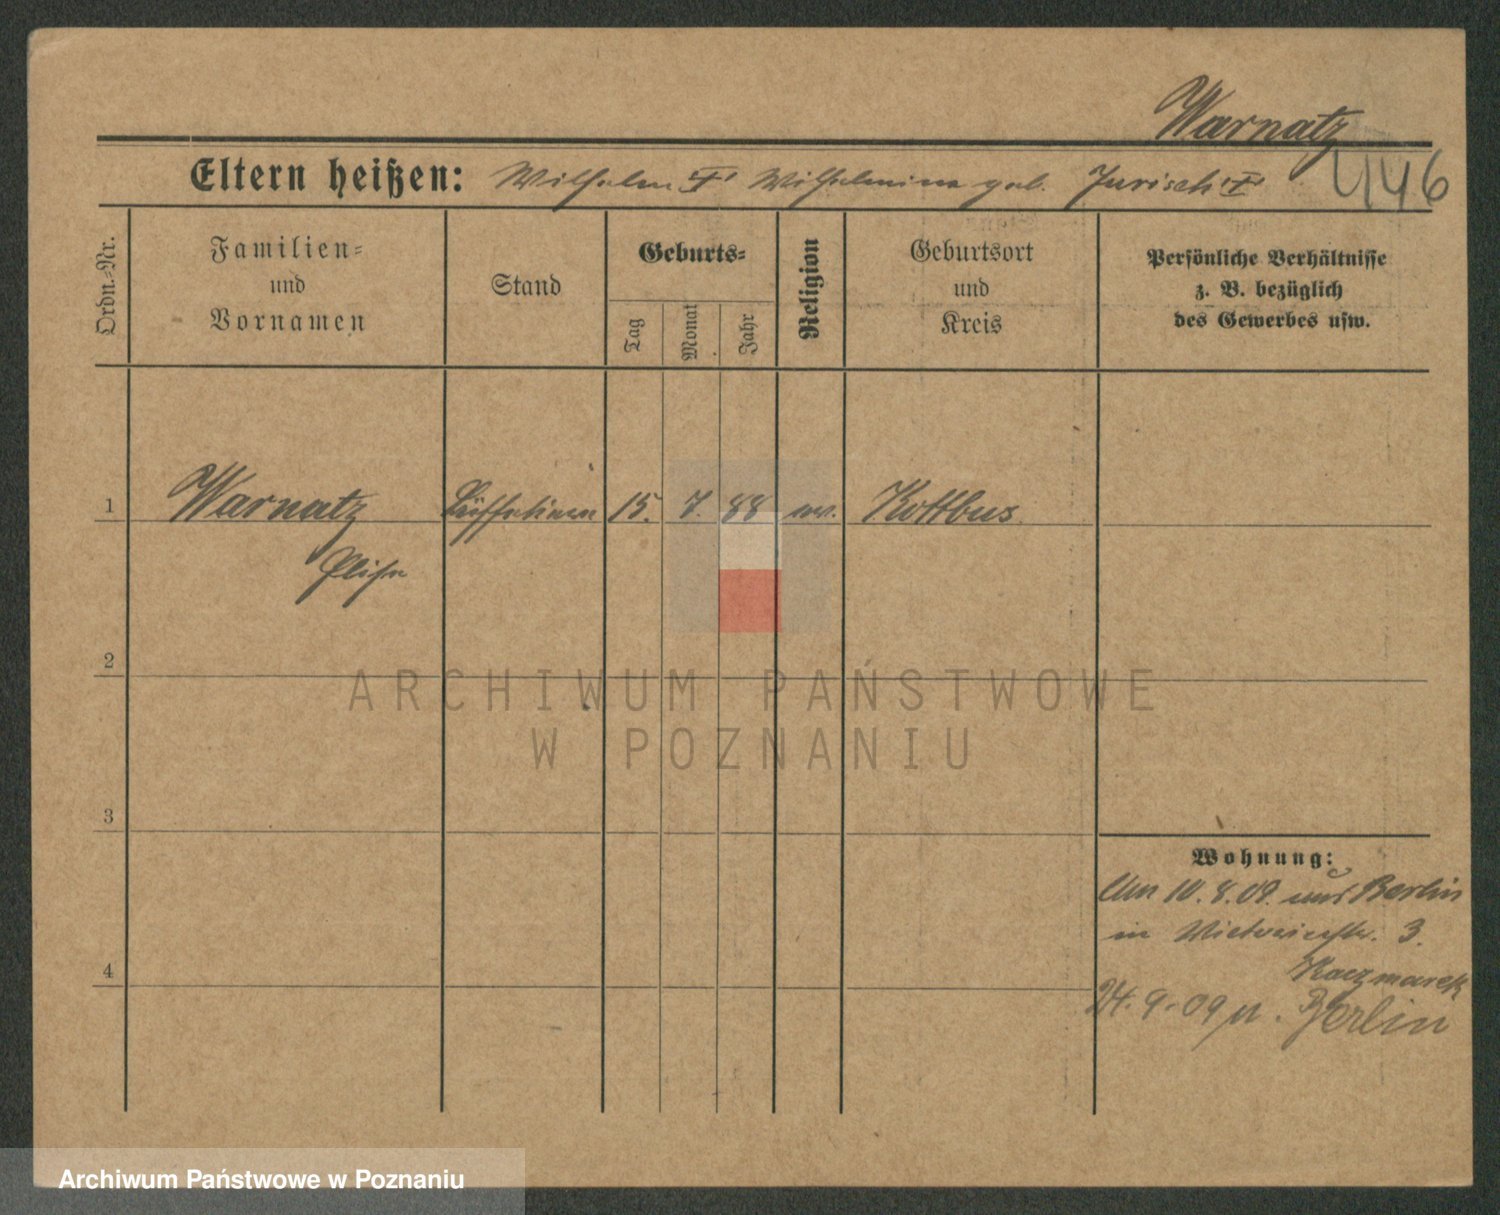 Warnatz
446
Eltern heißen: Wilhelm † Wilhelmine geb. Jurisch †
Ordn.-Nr.
Familien-
und
Vornamen
Stand
Geburts-
Tag
Monat
Jahr
Religion
Geburtsort
und
Kreis
Persönliche Verhältnisse
z. B. bezüglich
des Gewerbes usw.
1 Warnatz 15. 7. 88 ev. Kottbus
Elise
2
ARCHIWUM PAŃSTWOWE
W POZNANIU
3
Wohnung:
10.8.09. Berlin
in 3.
Kaczmarek
4
24.9.09 n. Berlin
Archiwum Państwowe w Poznaniu